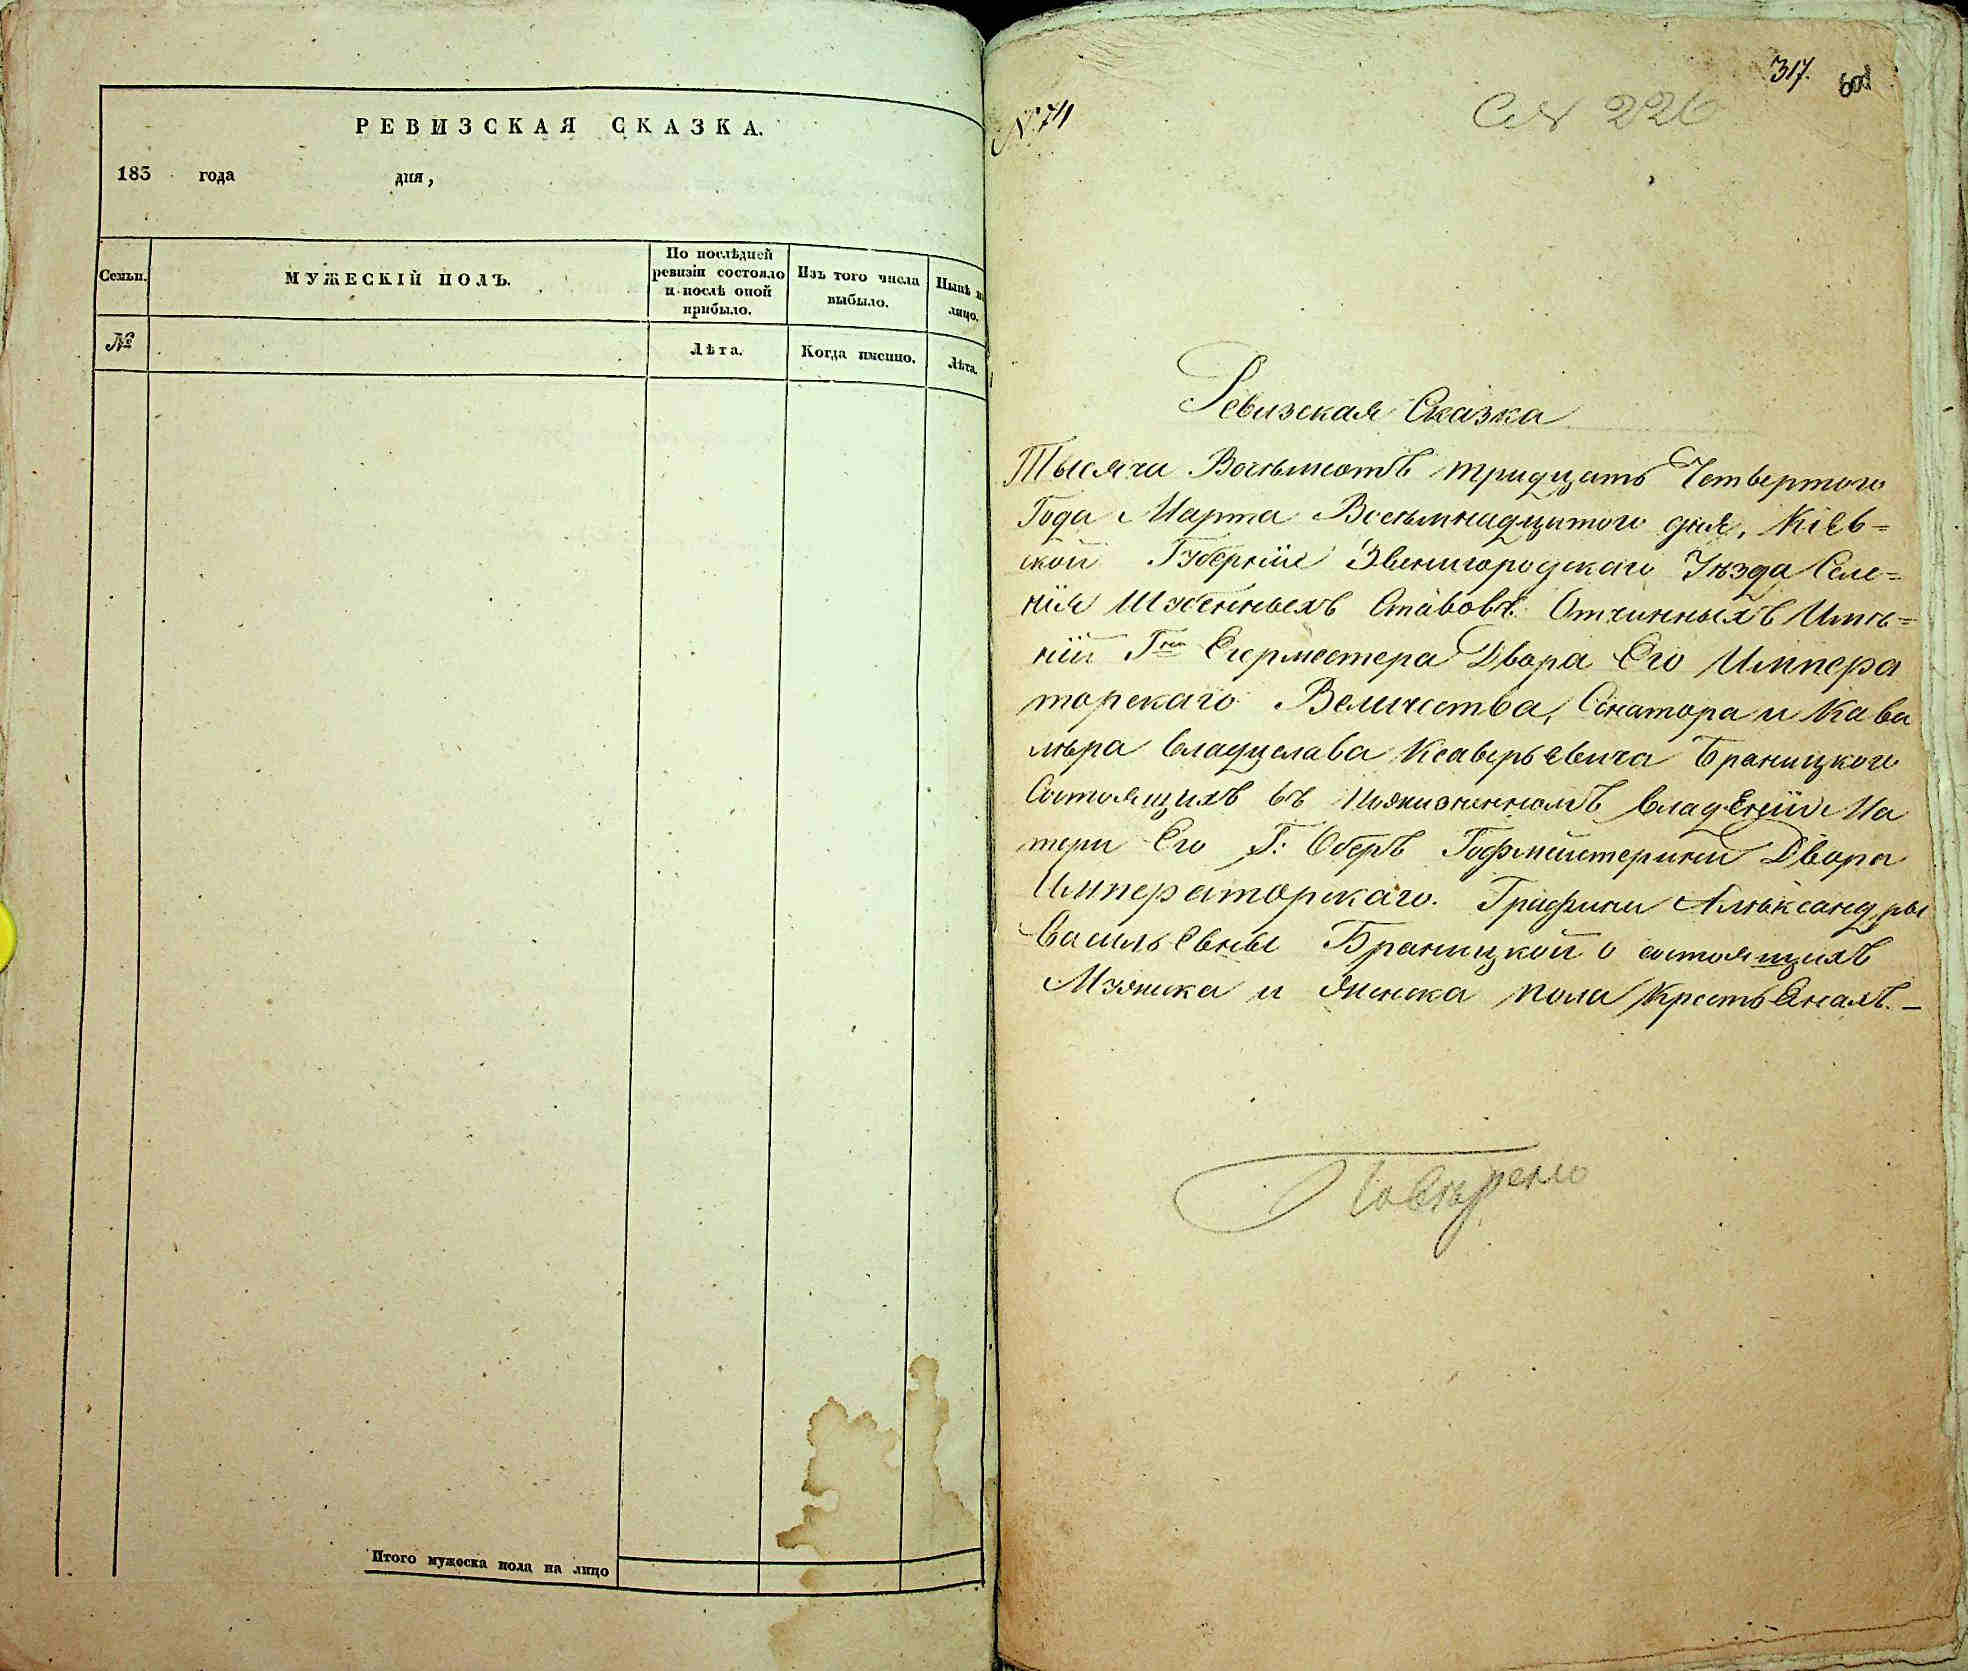 РЕВИЗСКАЯ СКАЗКА.
183 года дня,
Семьи.
МУЖЕСКІЙ ПОЛЪ.
По послѣдней ревизіи состояло и послѣ оной прибыло.
Изъ того числа выбыло.
Нынѣ на лицо.
№
Лѣта.
Когда именно.
Лѣта.
Итого мужеска пола на лицо
317.
№ 74
226
Ревизская Сказка
Тысяча Восемьсотъ тридцать Четвертого
Года Марта Восемнадцатого дня, Кіев=
ской Губерніи Звенигородскаго Уѣзда Селе=
нія Шубенныхъ Ставовъ Отчинныхъ Имѣ=
ній Гна Егерместера Двора Его Импера
торскаго Величества, Сенатора и Кава
лѣра Владислава Ксаверьевича Браницкого
Состоящихъ въ пожизненномъ владеніи Ма
тери Его Г: Оберъ Гофмейстерини Двора
Императорскаго. Графини Алѣксандры
Васильевны Браницкой о состоящихъ
Мужска и женска пола Крестьянахъ. –
Повѣрено